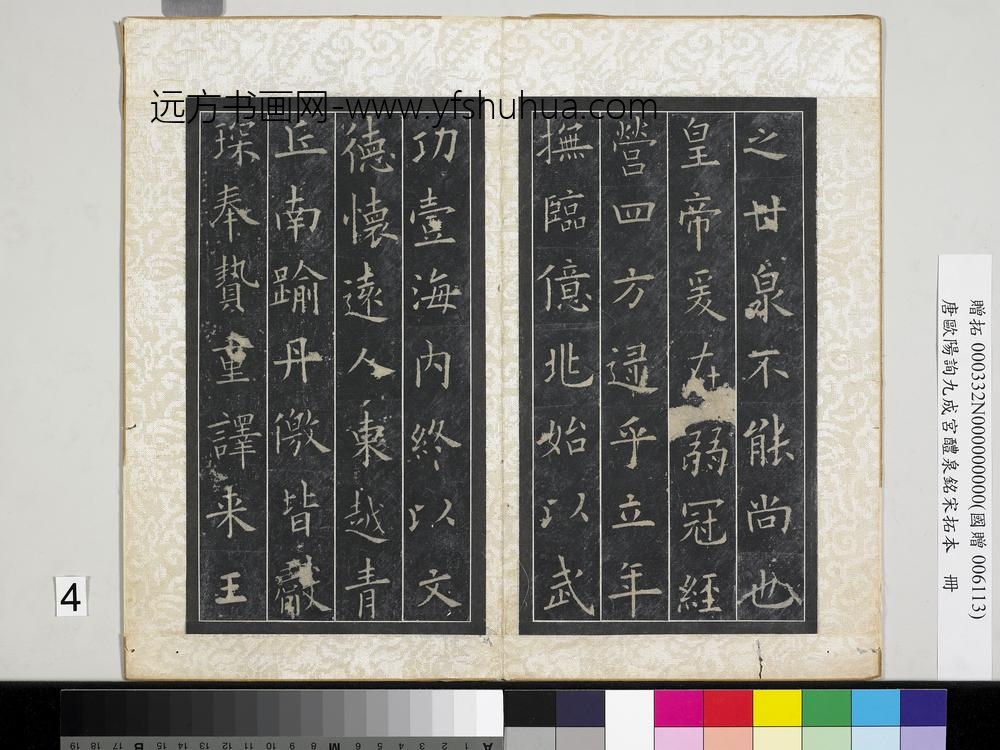 之甘泉不能尚也
皇帝爰在弱冠經
營四方逯乎立年
撫臨億兆始以武
功壹海内終以文
德懷遠人東越青
丘南踰丹徼皆獻
琛奉贄重譯来王
远方书画网-www.yfshuhua.com
4
贈拓 000332N000000000(國贈 006113)
唐歐陽詢九成宮醴泉銘宋拓本 冊
19 18 17 B 15 14 13 12 11 10 9 8 M 6 5 4 3 2 1 A